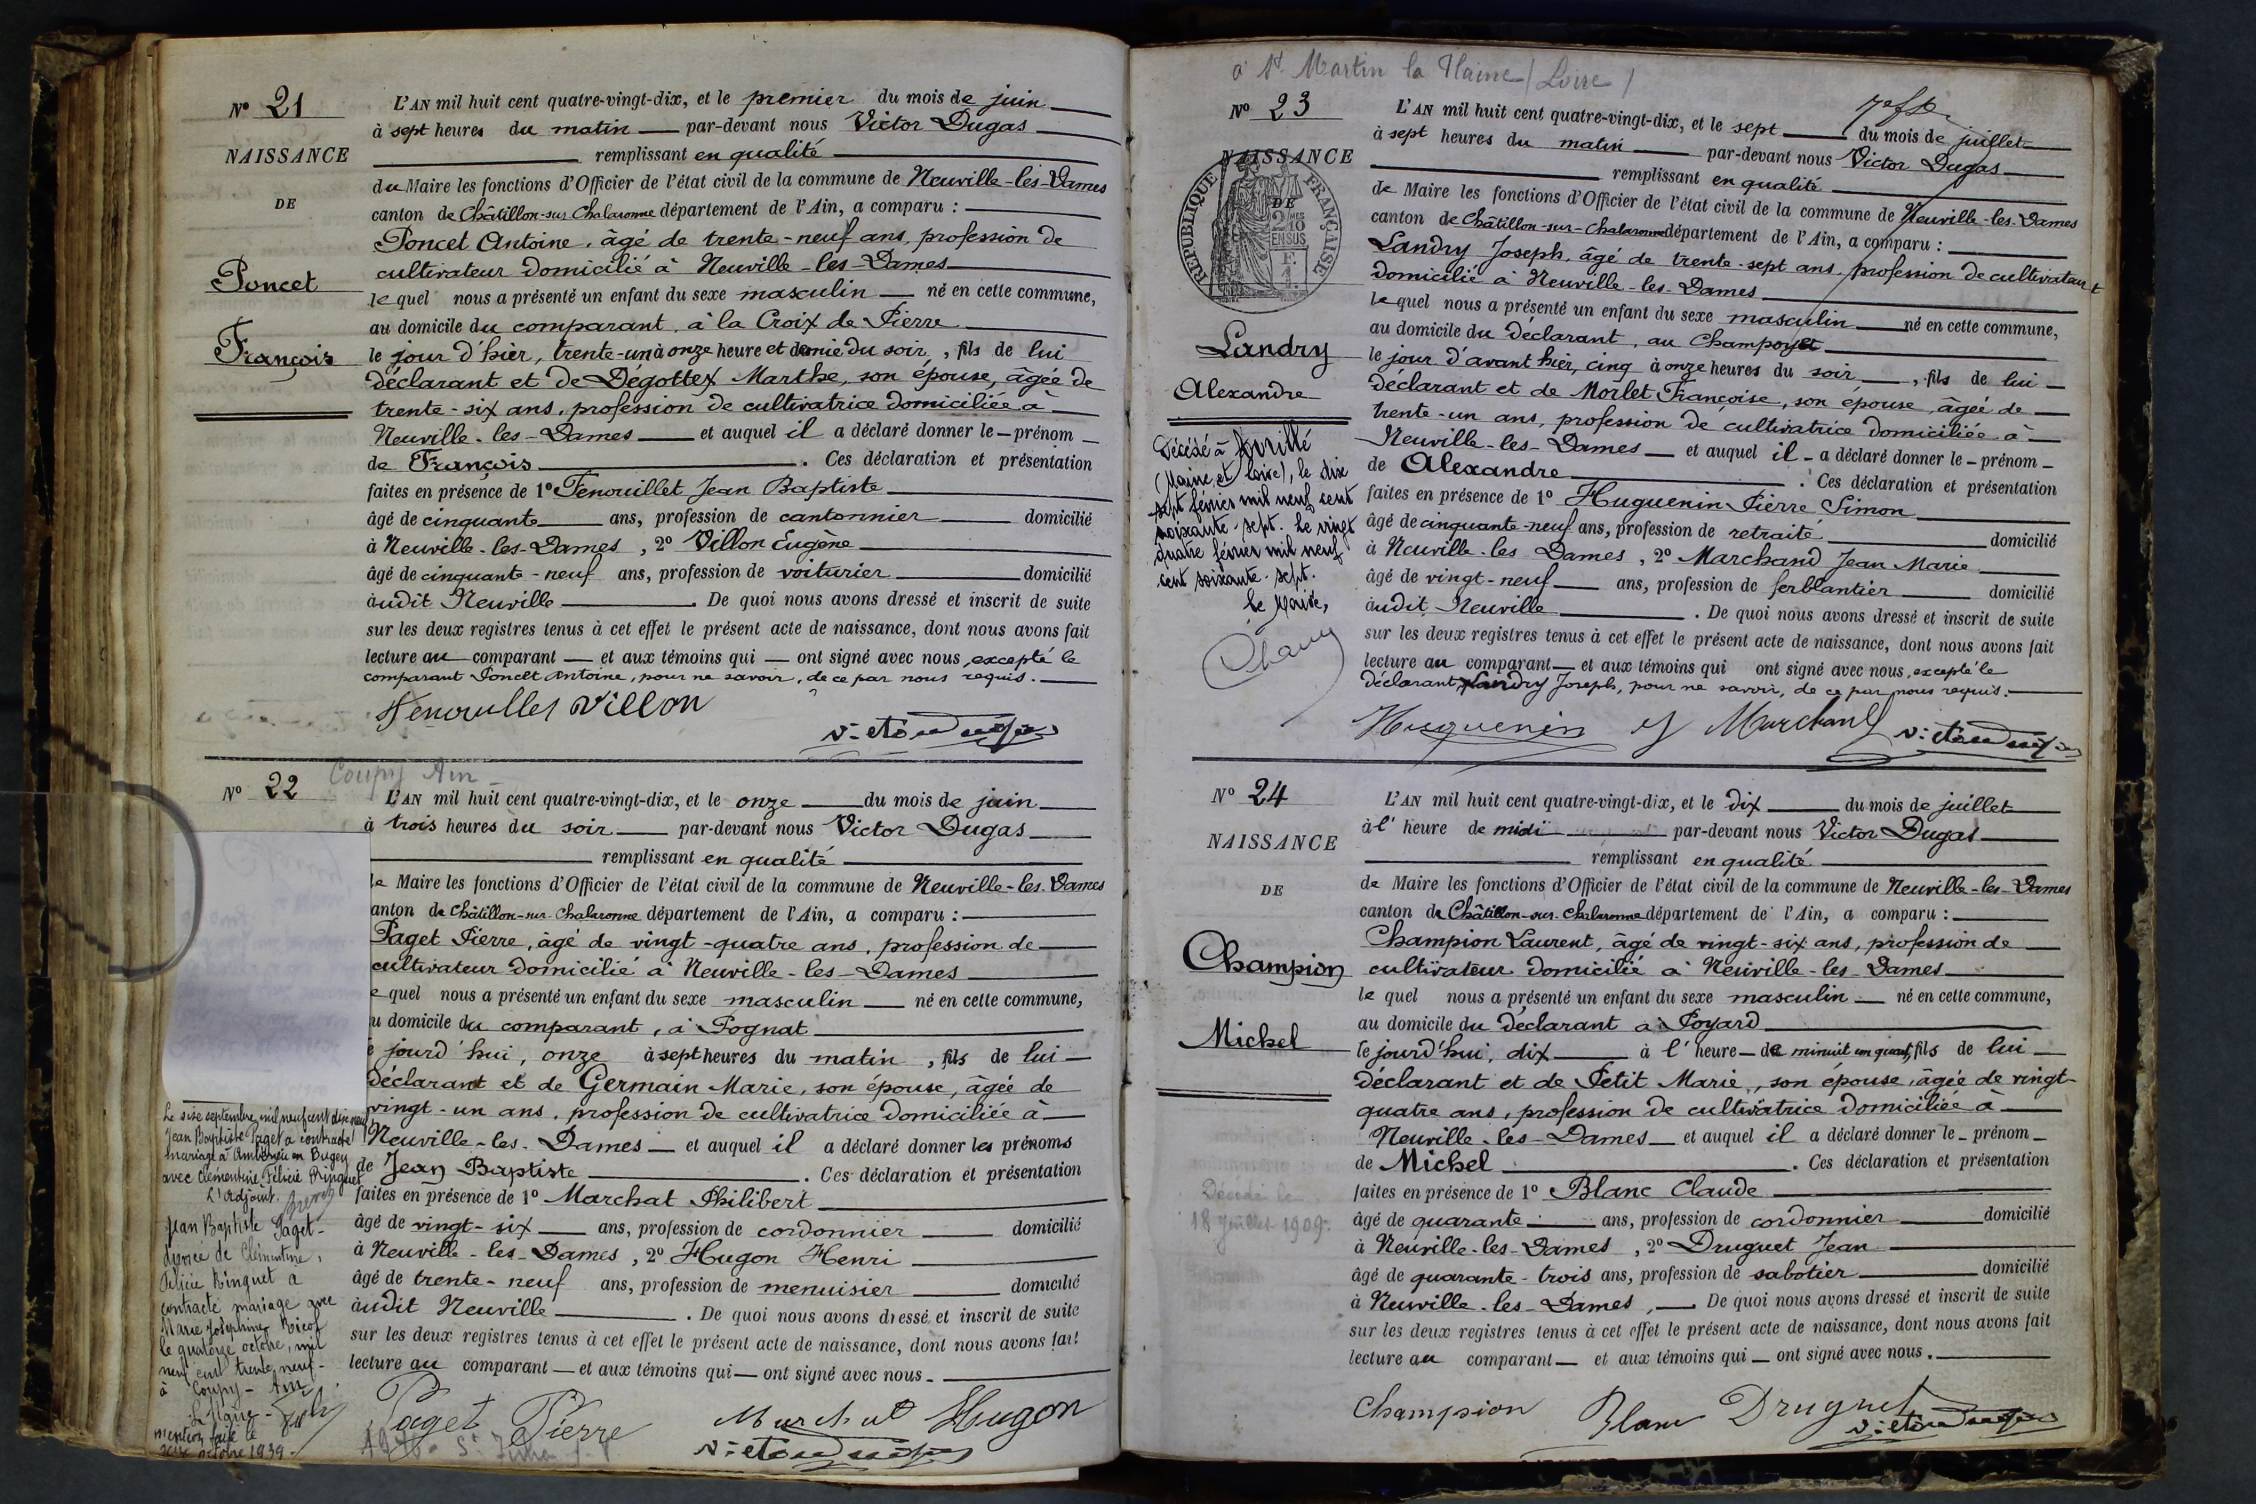 N° 21
NAISSANCE
DE
Poncet
François
L'AN mil huit cent quatre-vingt-dix, et le premier du mois de juin
à sept heures du matin par-devant nous Victor Dugas
remplissant en qualité
du Maire les fonctions d'Officier de l'état civil de la commune de Neuville-les-Dames
canton de Châtillon-sur-Chalaronne département de l'Ain, a comparu :
Poncet Antoine, âgé de trente-neuf ans, profession de
cultivateur domicilié à Neuville-les-Dames
lequel nous a présenté un enfant du sexe masculin né en cette commune,
au domicile du comparant, à la Croix de Pierre
le jour d'hier, trente-un à onze heure et demie du soir, fils de lui
déclarant et de Dégottex Marthe, son épouse, âgée de
trente-six ans, profession de cultivatrice domiciliée à
Neuville-les-Dames et auquel il a déclaré donner le prénom
de François. Ces déclaration et présentation
faites en présence de 1° Fenouillet Jean Baptiste
âgé de cinquante ans, profession de cantonnier domicilié
à Neuville-les-Dames, 2° Villon Eugène
âgé de cinquante-neuf ans, profession de voiturier domicilié
audit Neuville. De quoi nous avons dressé et inscrit de suite
sur les deux registres tenus à cet effet le présent acte de naissance, dont nous avons fait
lecture au comparant et aux témoins qui ont signé avec nous, excepté le
comparant Poncet Antoine, pour ne savoir, de ce par nous requis.
Fenouillet Villon
Victor Dugas
N° 22
Coupy Ain
L'AN mil huit cent quatre-vingt-dix, et le onze du mois de juin
à trois heures du soir par-devant nous Victor Dugas
remplissant en qualité
de Maire les fonctions d'Officier de l'état civil de la commune de Neuville-les-Dames
canton de Châtillon-sur-Chalaronne département de l'Ain, a comparu :
Paget Pierre, âgé de vingt-quatre ans, profession de
cultivateur domicilié à Neuville-les-Dames
lequel nous a présenté un enfant du sexe masculin né en cette commune,
au domicile du comparant, à Pognat
le jourd'hui, onze à sept heures du matin, fils de lui
déclarant et de Germain Marie, son épouse, âgée de
vingt-un ans, profession de cultivatrice domiciliée à
Neuville-les-Dames et auquel il a déclaré donner les prénoms
de Jean Baptiste. Ces déclaration et présentation
faites en présence de 1° Marchat Philibert
âgé de vingt-six ans, profession de cordonnier domicilié
à Neuville-les-Dames, 2° Hugon Henri
âgé de trente-neuf ans, profession de menuisier domicilié
audit Neuville. De quoi nous avons dressé et inscrit de suite
sur les deux registres tenus à cet effet le présent acte de naissance, dont nous avons fait
lecture au comparant et aux témoins qui ont signé avec nous.
Paget Pierre Marchat Hugon
Victor Dugas
Le seize septembre mil neuf cent dix neuf
Jean Baptiste Paget a contracté
mariage à Ambérieu en Bugey
avec Clémentine Félicie Ringuet
L'adjoint.
Jean Baptiste Paget
divorcé de Clémentine,
Félicie Ringuet a
contracté mariage avec
Marie Joséphine Nicol
le quatorze octobre, mil
neuf cent trente neuf
à Coupy - Ain
Le Maire
mention faite le
octobre 1939
à St Martin la Plaine (Loire)
N° 23
NAISSANCE
DE
RÉPUBLIQUE FRANÇAISE
2 MES 10
EN SUS
Landry
Alexandre
Décédé à Avrillé
(Maine et Loire), le dix
sept février mil neuf cent
soixante-sept. Le vingt
quatre février mil neuf
cent soixante-sept.
Le Maire,
L'AN mil huit cent quatre-vingt-dix, et le sept du mois de juillet
à sept heures du matin par-devant nous Victor Dugas
remplissant en qualité
de Maire les fonctions d'Officier de l'état civil de la commune de Neuville-les-Dames
canton de Châtillon-sur-Chalaronne département de l'Ain, a comparu :
Landry Joseph, âgé de trente-sept ans, profession de cultivateur
domicilié à Neuville-les-Dames
lequel nous a présenté un enfant du sexe masculin né en cette commune,
au domicile du déclarant, au Champoyet
le jour d'avant hier, cinq à onze heures du soir, fils de lui
déclarant et de Morlet Françoise, son épouse, âgée de
trente-un ans, profession de cultivatrice domiciliée à
Neuville-les-Dames et auquel il a déclaré donner le prénom
de Alexandre. Ces déclaration et présentation
faites en présence de 1° Huguenin Pierre Simon
âgé de cinquante-neuf ans, profession de retraité domicilié
à Neuville-les Dames, 2° Marchand Jean Marie
âgé de vingt-neuf ans, profession de ferblantier domicilié
audit Neuville. De quoi nous avons dressé et inscrit de suite
sur les deux registres tenus à cet effet le présent acte de naissance, dont nous avons fait
lecture au comparant et aux témoins qui ont signé avec nous, excepté le
déclarant Landry Joseph, pour ne savoir, de ce par nous requis.
Huguenin J Marchand Victor Dugas
N° 24
NAISSANCE
DE
Champion
Michel
Décédé le
18 Juillet 1909.
L'AN mil huit cent quatre-vingt-dix, et le dix du mois de juillet
à l'heure de midi par-devant nous Victor Dugas
remplissant en qualité
de Maire les fonctions d'Officier de l'état civil de la commune de Neuville-les-Dames
canton de Châtillon-sur-Chalaronne département de l'Ain, a comparu :
Champion Laurent, âgé de vingt-six ans, profession de
cultivateur domicilié à Neuville-les-Dames
lequel nous a présenté un enfant du sexe masculin né en cette commune,
au domicile du déclarant à Poyard
le jourd'hui, dix à l'heure de minuit un quart, fils de lui
déclarant et de Petit Marie, son épouse, âgée de vingt-
quatre ans, profession de cultivatrice domiciliée à
Neuville-les-Dames et auquel il a déclaré donner le prénom
de Michel. Ces déclaration et présentation
faites en présence de 1° Blanc Claude
âgé de quarante ans, profession de cordonnier domicilié
à Neuville-les-Dames, 2° Druguet Jean
âgé de quarante-trois ans, profession de sabotier domicilié
à Neuville-les-Dames, De quoi nous avons dressé et inscrit de suite
sur les deux registres tenus à cet effet le présent acte de naissance, dont nous avons fait
lecture au comparant et aux témoins qui ont signé avec nous.
Champion Blanc Druguet
Victor Dugas